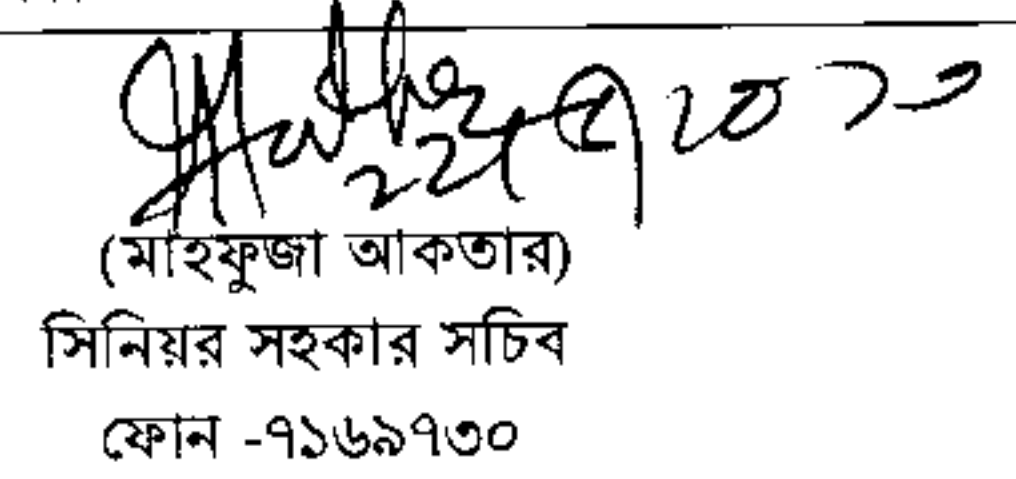 (মাহফুজা আকতার)
সিনিয়র সহকার সচিব
ফোন -৭১৬৯৭৩০